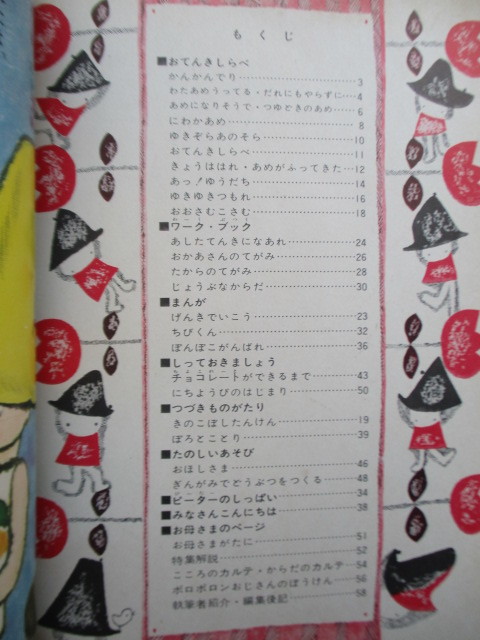 もくじ
■おてんきしらべ
かんかんでり……3
わたあめうってる・だれにもやらずに…4
あめになりそうで・つゆどきのあめ…6
にわかあめ……8
ゆきぞらあのそら……10
おてんきしらべ……11
きょうははれ・あめがふってきた…12
あっ!ゆうだち……14
ゆきゆきつもれ……16
おおさむこさむ……18
■ワーク・ブック
あしたてんきになあれ……24
おかあさんのてがみ……26
たからのてがみ……28
じょうぶなからだ……30
■まんが
げんきでいこう……23
ちびくん……32
ぽんぽこがんばれ……36
■しっておきましょう
チョコレートができるまで……43
にちようびのはじまり……50
■つづきものがたり
きのこぼしたんけん……19
ぽろとことり……39
■たのしいあそび
おほしさま……46
ぎんがみでどうぶつをつくる……48
■ピーターのしっぱい……34
■みなさんこんにちは……38
■お母さまのページ
お母さまがたに……51
特集解説……52
こころのカルテ・からだのカルテ…54
ポロポロンおじさんのぼうけん…56
執筆者紹介・編集後記……58